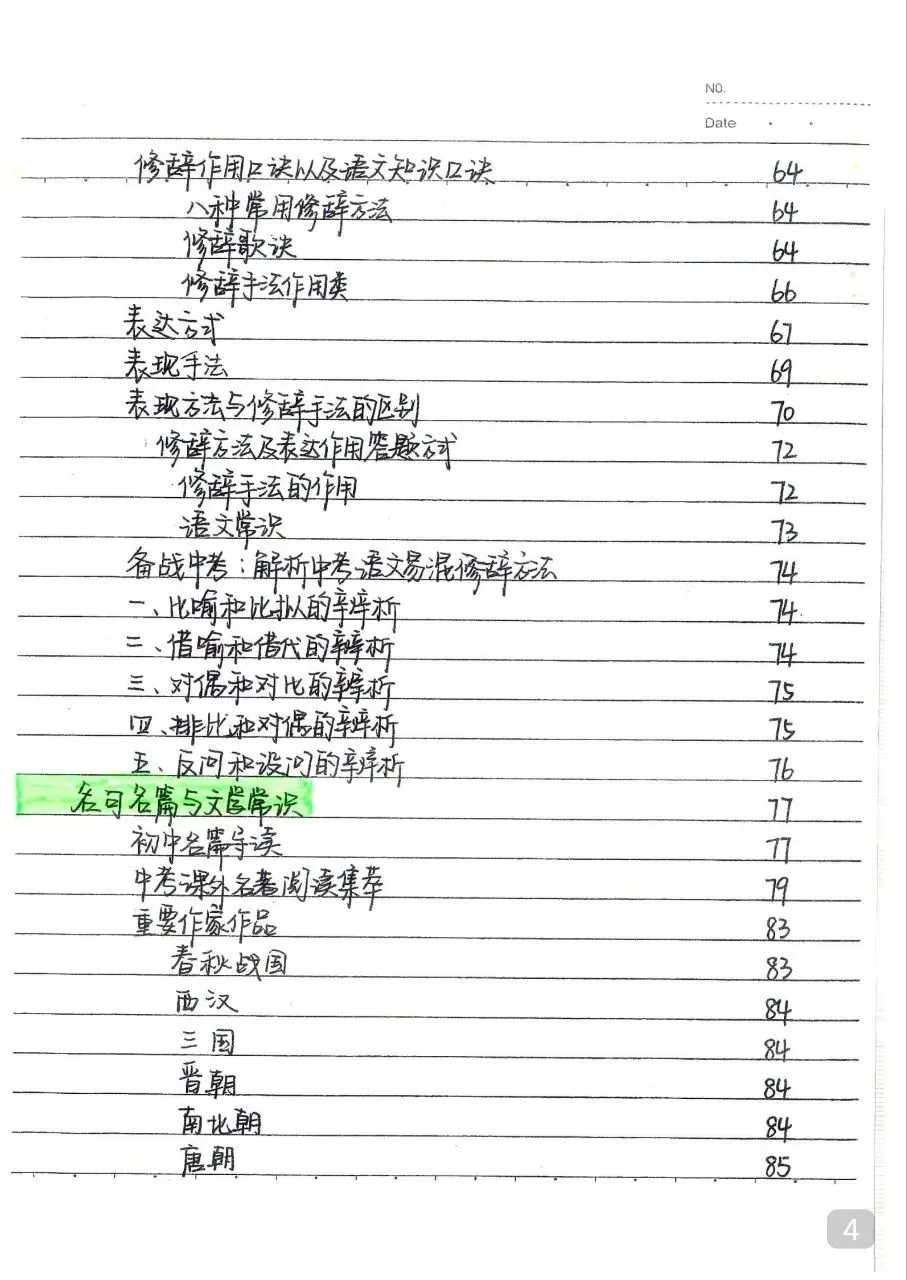 NO.
Date
修辞作用口诀以及语文知识口诀 64
八种常用修辞方法 64
修辞歌诀 64
修辞手法作用类 66
表达方式 67
表现手法 69
表现方法与修辞手法的区别 70
修辞方法及表达作用答题方式 72
修辞手法的作用 72
语文常识 73
备战中考:解析中考语文易混修辞方法 74
一、比喻和比拟的辨析 74
二、借喻和借代的辨析 74
三、对偶和对比的辨析 75
四、排比和对偶的辨析 75
五、反问和设问的辨析 76
名句名篇与文学常识 77
初中名篇导读 77
中考课外名著阅读集萃 79
重要作家作品 83
春秋战国 83
西汉 84
三国 84
晋朝 84
南北朝 84
唐朝 85
4